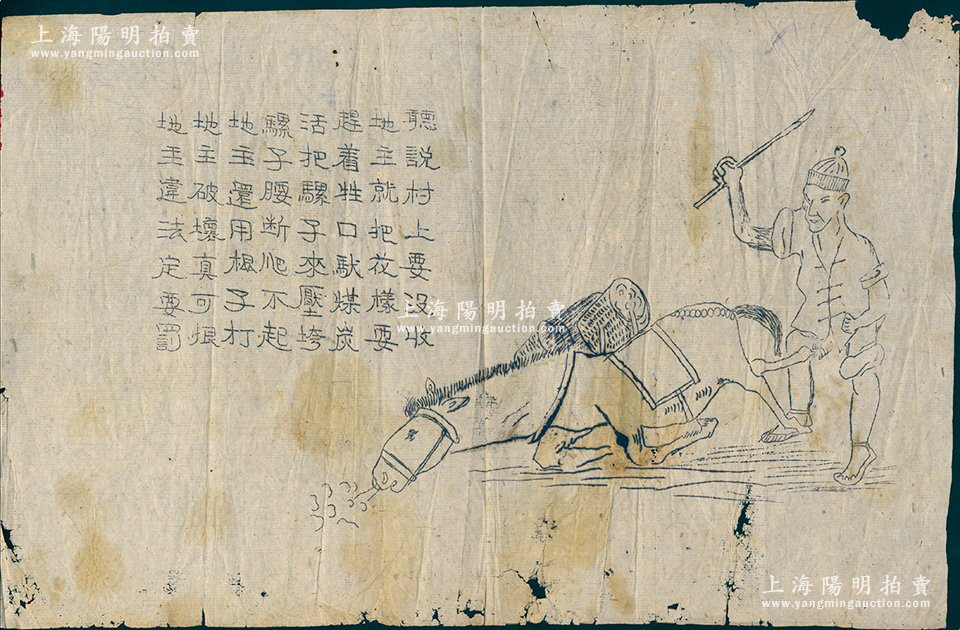 上海陽明拍賣
www.yangmingauction.com
聽說村上要没收
地主就把花樣耍
趕着牲口馱煤炭
活把騾子來壓垮
騾子腰断爬不起
地主還用棍子打
地主破壞真可恨
地主違法定要罰
上海陽明拍賣
www.yangmingauction.com
上海陽明拍賣
www.yangmingauction.com